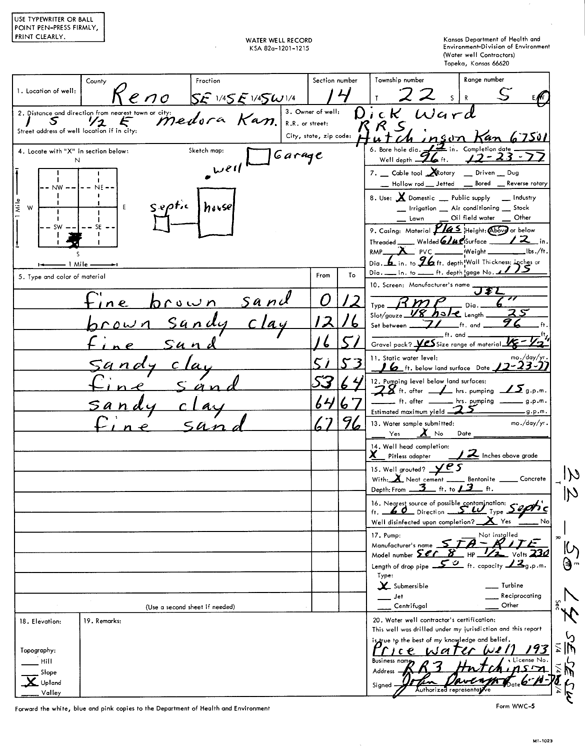 USE TYPEWRITER OR BALL
POINT PEN-PRESS FIRMLY,
PRINT CLEARLY.
WATER WELL RECORD
KSA 82a-1201-1215
Kansas Department of Health and
Environment-Division of Environment
(Water well Contractors)
Topeka, Kansas 66620
1. Location of well:
County
Reno
Fraction
SE 1/4 SE 1/4 SW 1/4
Section number
14
Township number
T 22 S
Range number
R 5 E/W
2. Distance and direction from nearest town or city:
1 S 1/2 E Medora Kan.
Street address of well location if in city:
3. Owner of well: Dick Ward
R.R. or street: RR5
City, state, zip code: Hutchinson Kan 67501
4. Locate with "X" in section below:
N
NW NE
W E
SW SE
S
1 Mile
1 Mile
Sketch map:
Garage
.well
septic
house
6. Bore hole dia. 12 in. Completion date
Well depth 96 ft. 12-23-77
7. Cable tool X Rotary Driven Dug
Hollow rod Jetted Bored Reverse rotary
8. Use: X Domestic Public supply Industry
Irrigation Air conditioning Stock
Lawn Oil field water Other
9. Casing: Material Plas Height: Above or below
Threaded Welded Glue Surface 12 in.
RMP X PVC Weight lbs./ft.
Dia. 6 in. to 96 ft. depth Wall Thickness: inches or
Dia. in. to ft. depth gage No. .175
5. Type and color of material
From To
fine brown sand 0 12
brown sandy clay 12 16
fine sand 16 51
sandy clay 51 53
fine sand 53 64
sandy clay 64 67
fine sand 67 96
(Use a second sheet if needed)
10. Screen: Manufacturer's name
J&L
Type RMP Dia. 6"
Slot/gauze 1/8 hole Length 25
Set between 71 ft. and 96 ft.
ft. and ft.
Gravel pack? yes Size range of material 1/8-1/2"
11. Static water level: mo./day/yr.
16 ft. below land surface Date 12-23-77
12. Pumping level below land surfaces:
28 ft. after 1 hrs. pumping 15 g.p.m.
ft. after hrs. pumping g.p.m.
Estimated maximum yield 25 g.p.m.
13. Water sample submitted: mo./day/yr.
Yes X No Date
14. Well head completion:
X Pitless adapter 12 Inches above grade
15. Well grouted? yes
With: X Neat cement Bentonite Concrete
Depth: From 3 ft. to 13 ft.
16. Nearest source of possible contamination:
ft. 60 Direction SW Type Septic
Well disinfected upon completion? X Yes No
17. Pump: Not installed
Manufacturer's name STA-RITE
Model number Ser 8 HP 1/2 Volts 230
Length of drop pipe 50 ft. capacity 12 g.p.m.
Type:
X Submersible Turbine
Jet Reciprocating
Centrifugal Other
18. Elevation:
Topography:
Hill
Slope
X Upland
Valley
19. Remarks:
20. Water well contractor's certification:
This well was drilled under my jurisdiction and this report
is true to the best of my knowledge and belief.
Price Water Well 193
Business name License No.
Address RR3 Hutchinson
Signed John Davenport Date 6-14-78
Authorized representative
T 22 - R 5 E/W Sec 14 1/4 1/4 1/4 SE-SE-SW
Forward the white, blue and pink copies to the Department of Health and Environment
Form WWC-5